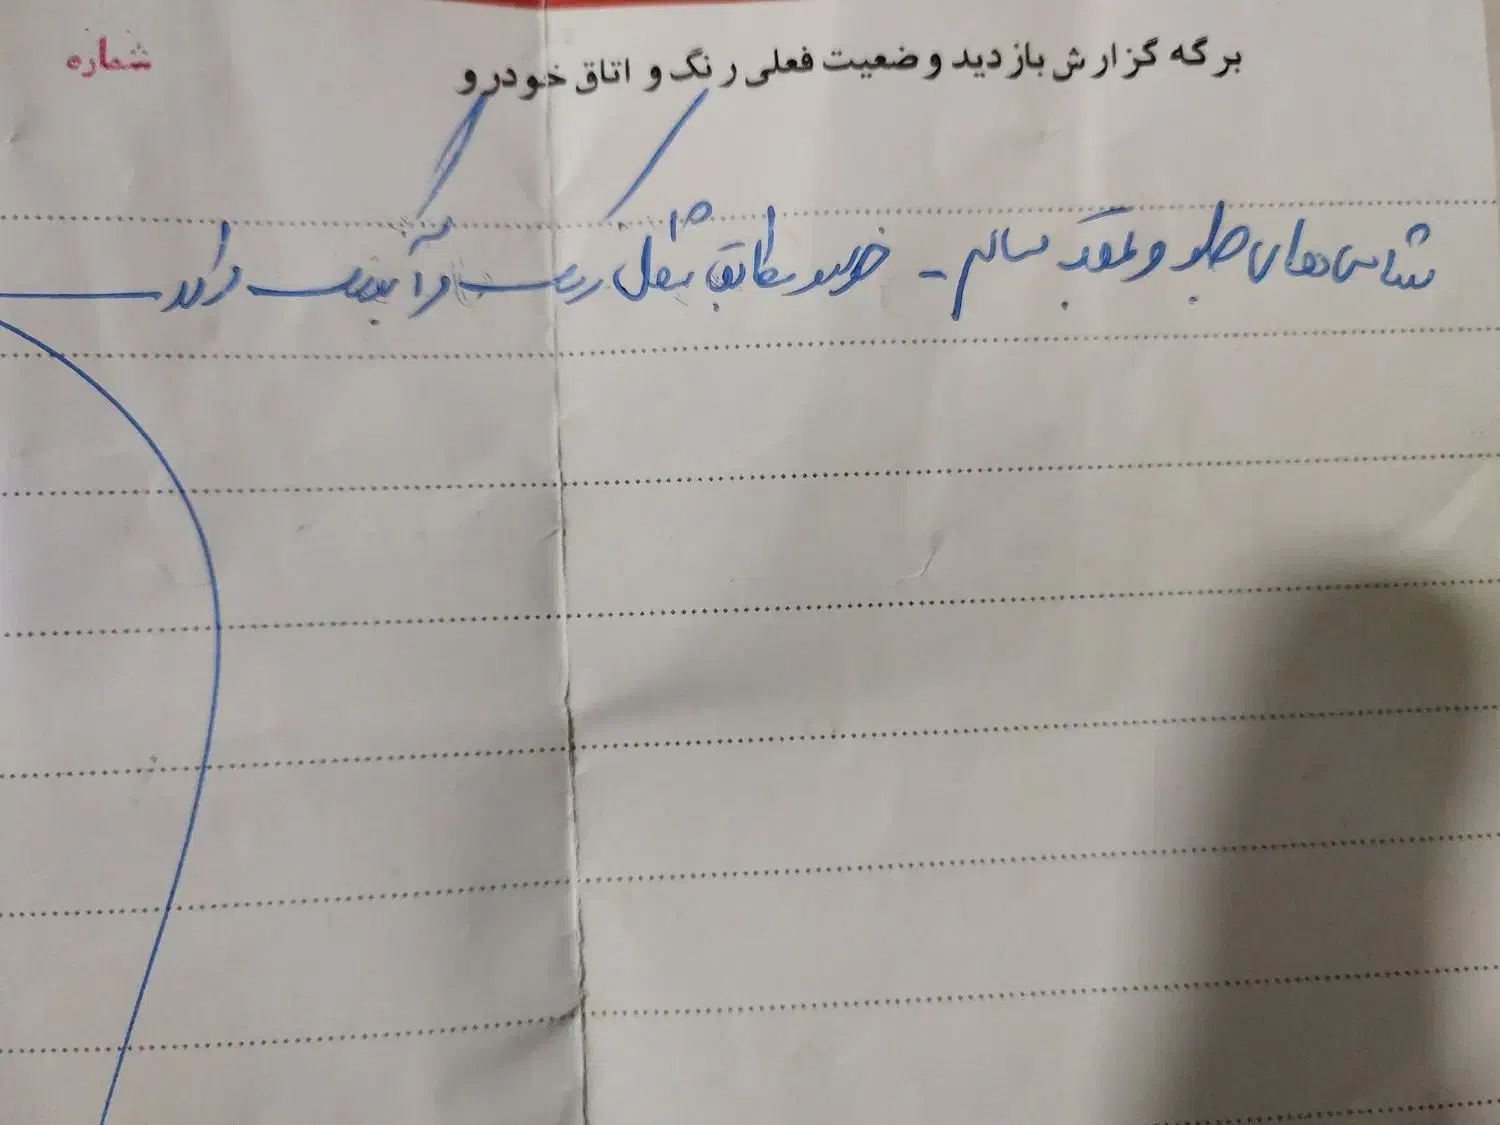 شماره
برگه گزارش بازدید وضعیت فعلی رنگ و اتاق خودرو
شاسی های جلو و عقب سالم - خودرو مطابق شکل رنگ و آبرنگ دارد